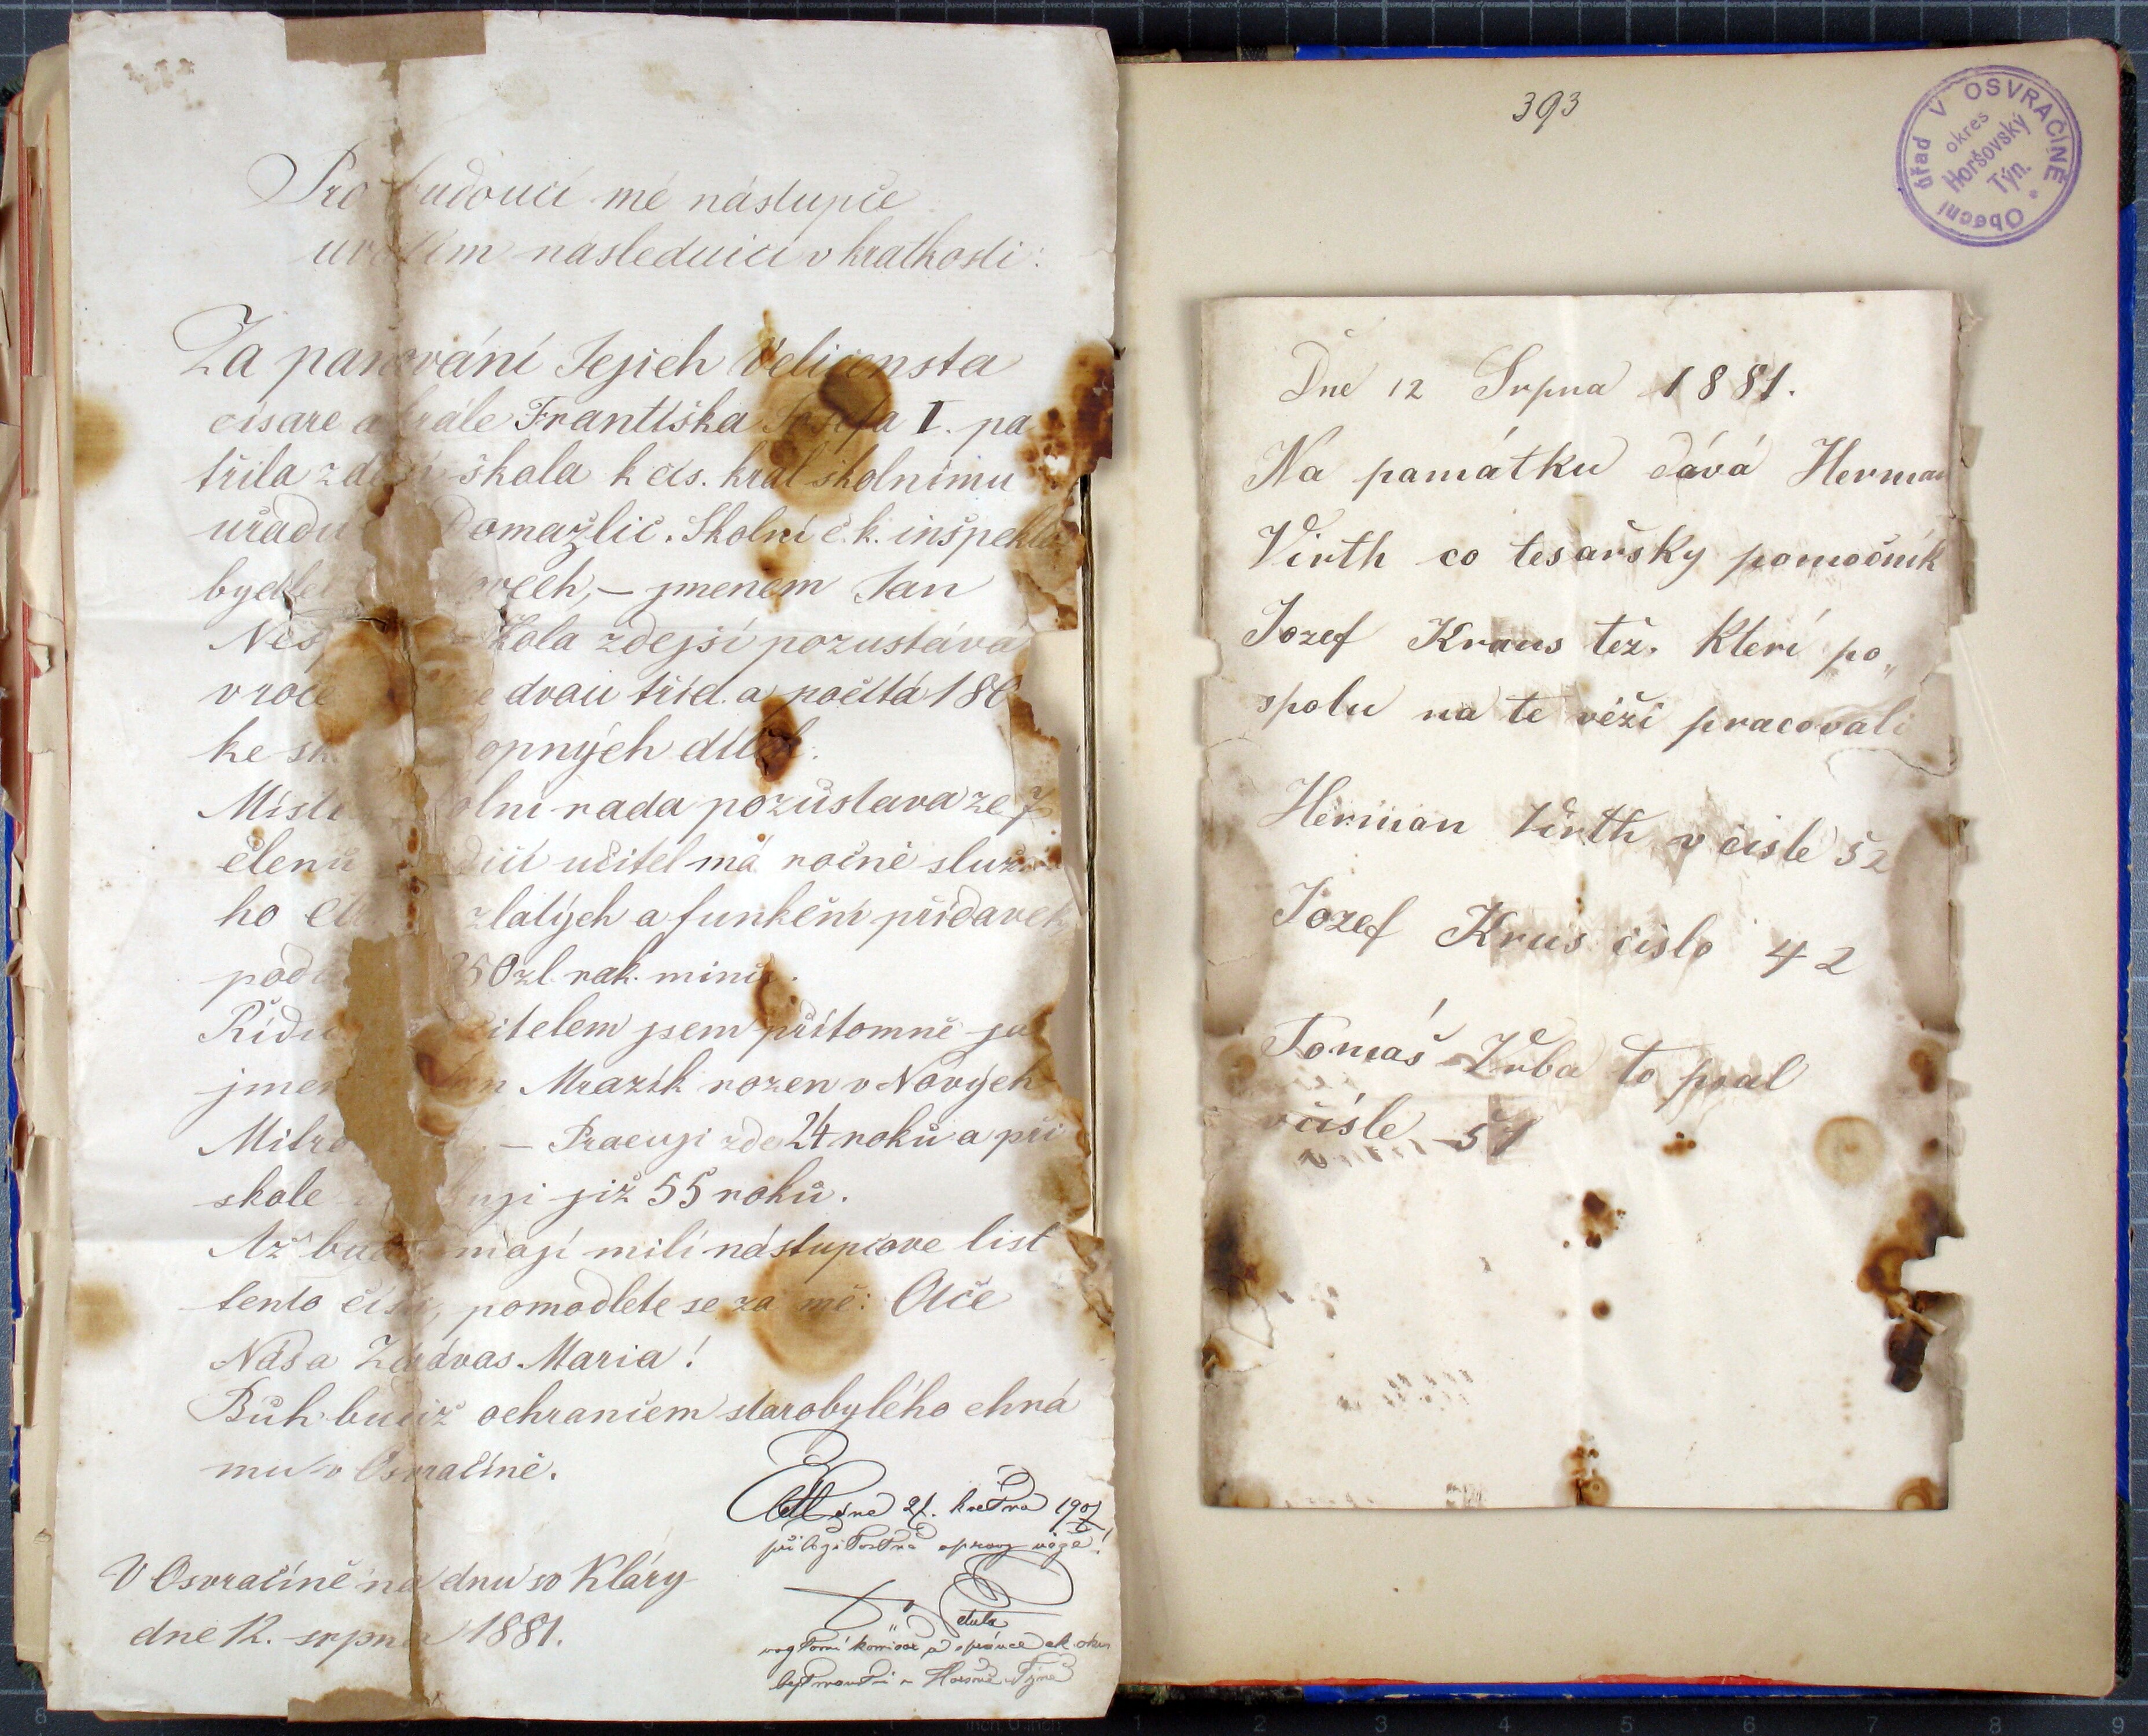 Pro budoucí mé nástupce
uvádím následující v krátkosti:
Za panování Jejich Veličensta
císaře a krále Františka Josefa I. pa
třila zdejší škola k cís. král školnímu
úřadu Domažlic. Školní c. k. inšpektor
bydlel, – jmenem Jan
škola zdejší pozustává
v roce dvou tříd. a počítá 180
ke šk opných dítek.
Míste olní rada pozůstava ze 7
členů dící učitel má ročně služ
ho zlatých a funkční přídavek
50 zl. rak. minci.
Řídí itelem jsem přítomně ja
jmen Jan Mrazík rozen v Nových
Mitro – Pracuji zde 24 roků a při
škole uji již 55 roků.
Až budou moji milí nástupcove list
tento čísti, pomodlete se za mě: Otče
Náš a Zdrávas Maria!
Bůh budiž ochrancem starobylého chrá
mu v Osvračíně.
V Osvračíně na dnu sv Kláry
dne 12. srpna 1881.
dne 21. května 1907
opravy věže!
komisař a správce ck. okr.
hejtmanství v Horšově Týně
393
Obecní úřad V OSVRAČÍNĚ
okres
Horšovský
Týn.
Dne 12 Srpna 1881.
Ná památku dává Herman
Virth co tesařsky pomočník
Jozef Kraus též. Kteří po„
spolu na te věži pracovali
Herman Virth v čisle 52
Jozef Krus čislo 42
Tomáš Vrba to psal
včísle 51